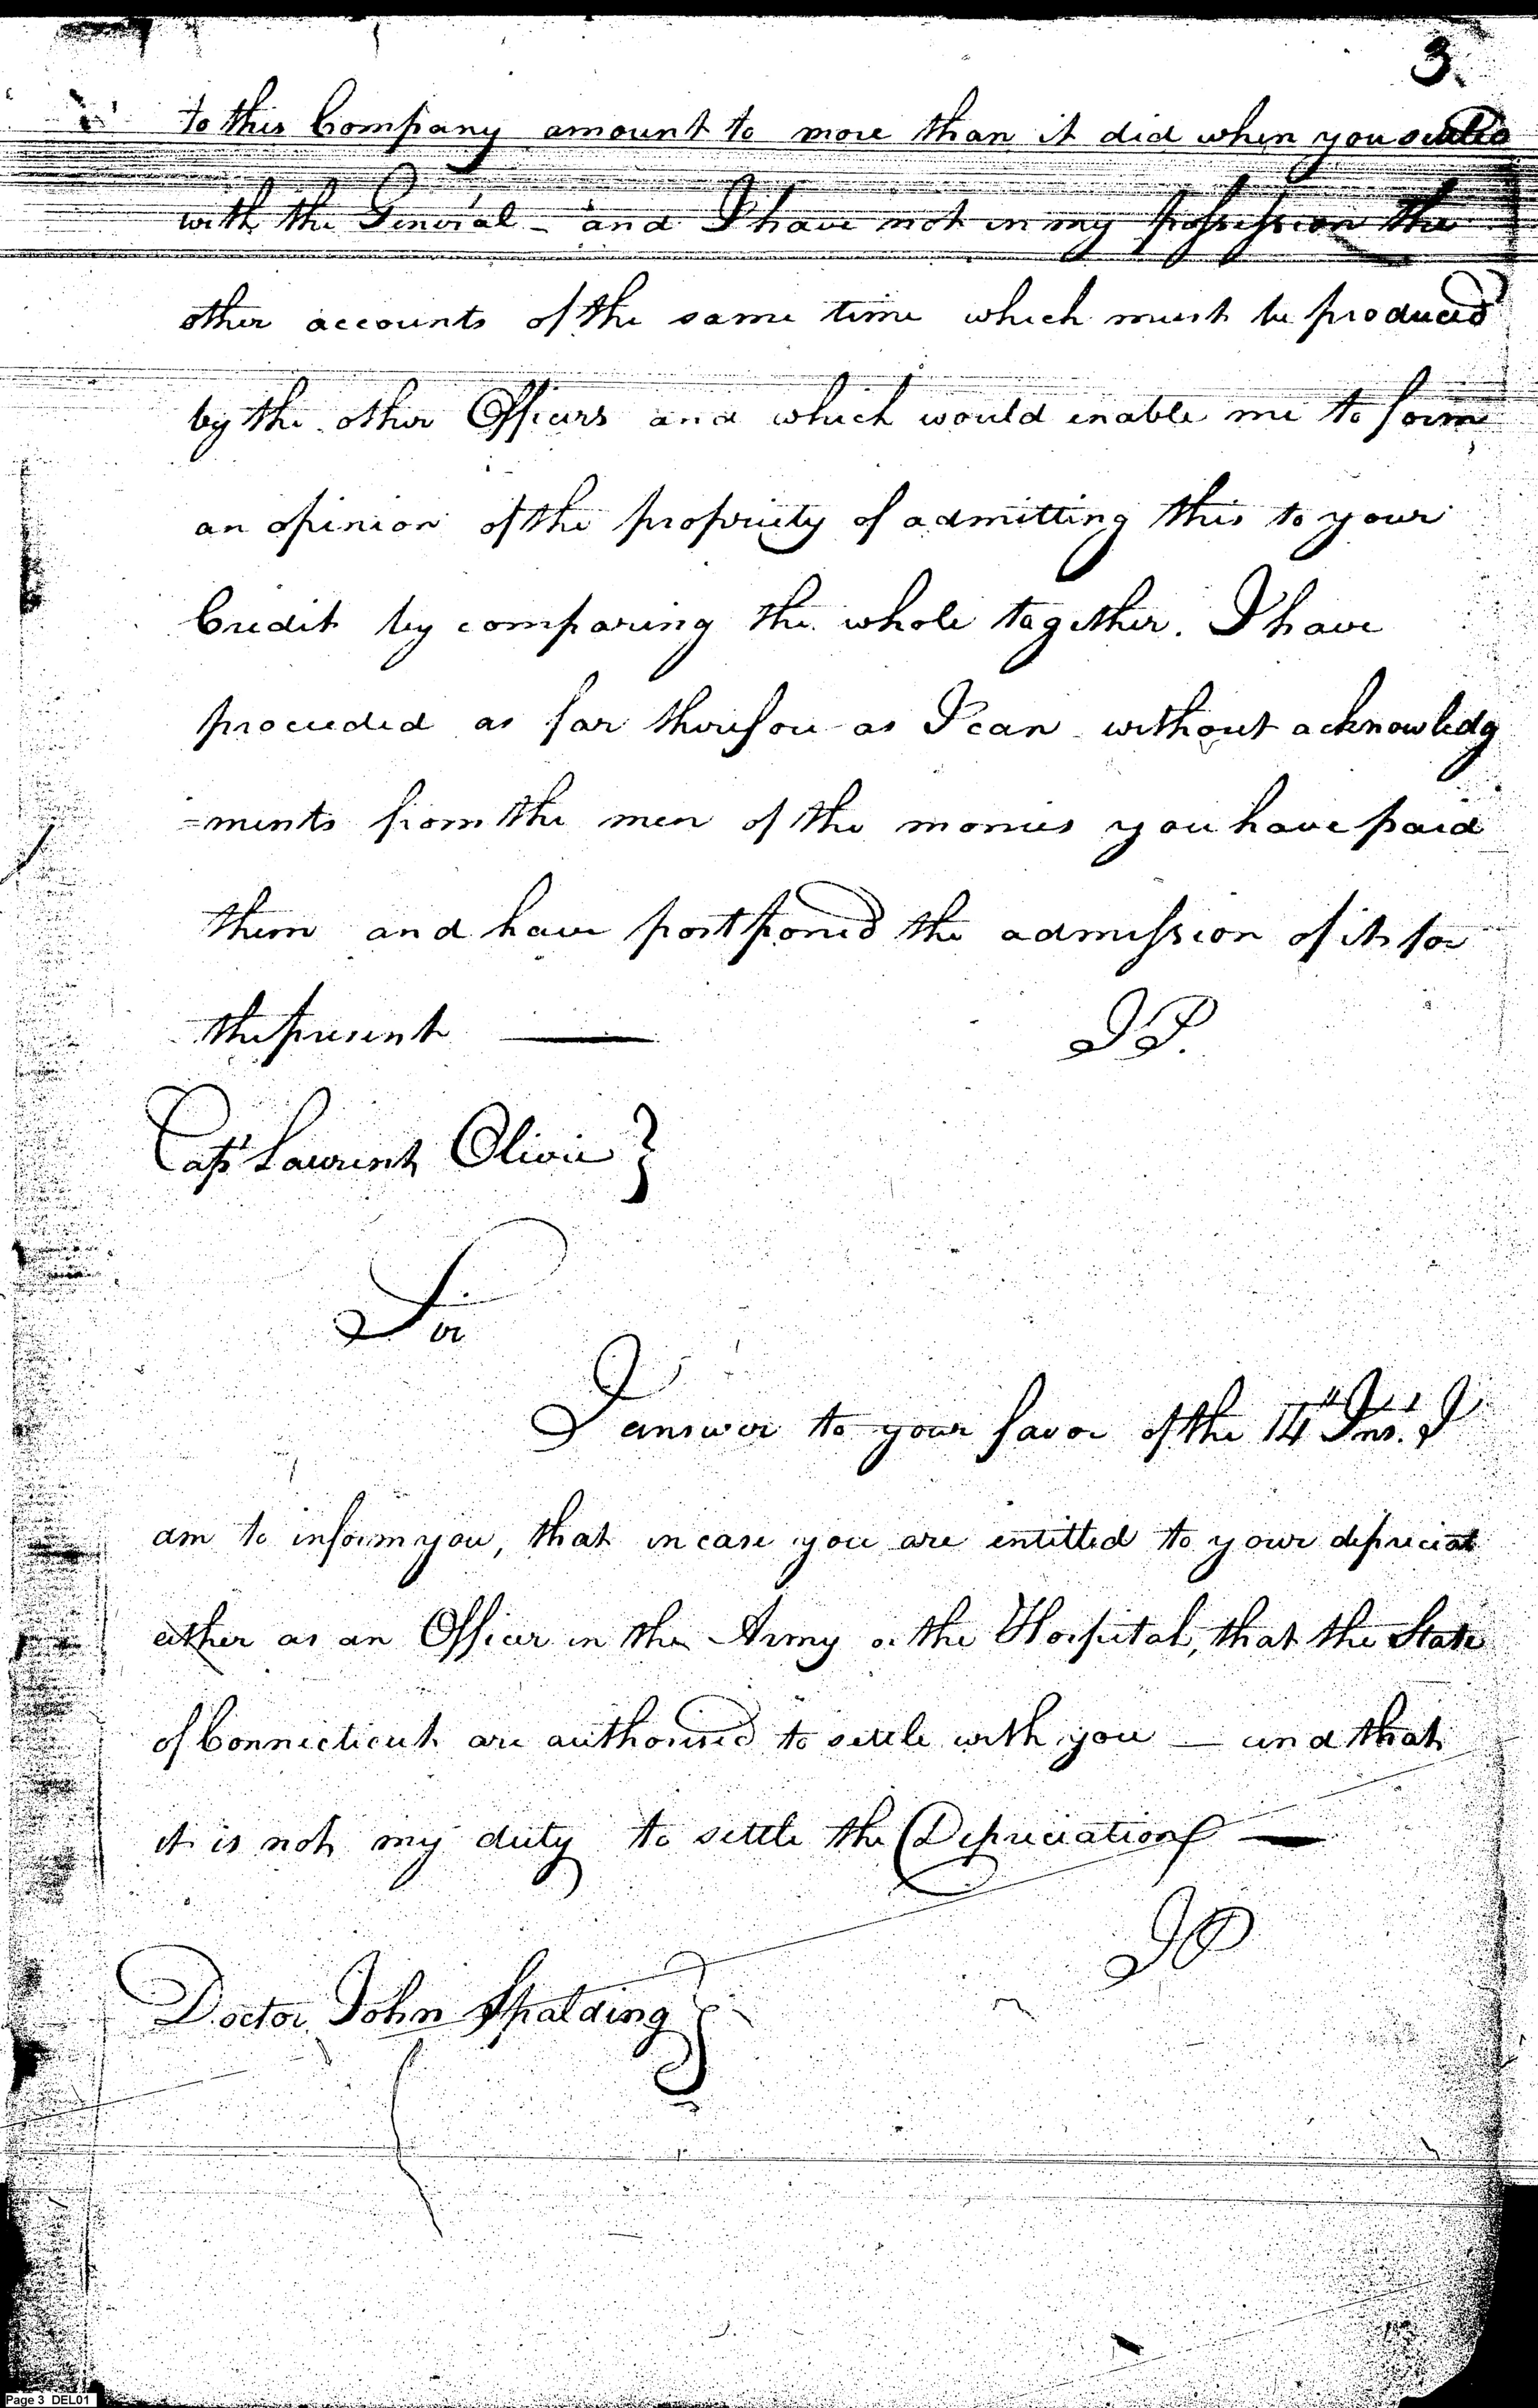 3.
to this Company amount to more than it did when you settled
with the General - and I have not in my possession the
other accounts of the same time which must be produced
by the other Officers and which would enable me to form
an opinion of the propriety of admitting this to your
Credit by comparing the whole together. I have
proceeded as far therefore as I can without acknowledg
=ments from the men of the monies you have paid
them and have postponed the admission of it for
the present ——
JP.
Capt Laurent Olivie }
Sir
I answer to your favor of the 14th Inst. I
am to inform you, that in case you are entitled to your depreciat
either as an Officer in the Army or the Hospital, that the State
of Connecticut are authorised to settle with you — and that
it is not my duty to settle the Depreciation —
JP
Doctor John Spalding }
Page 3 DEL01